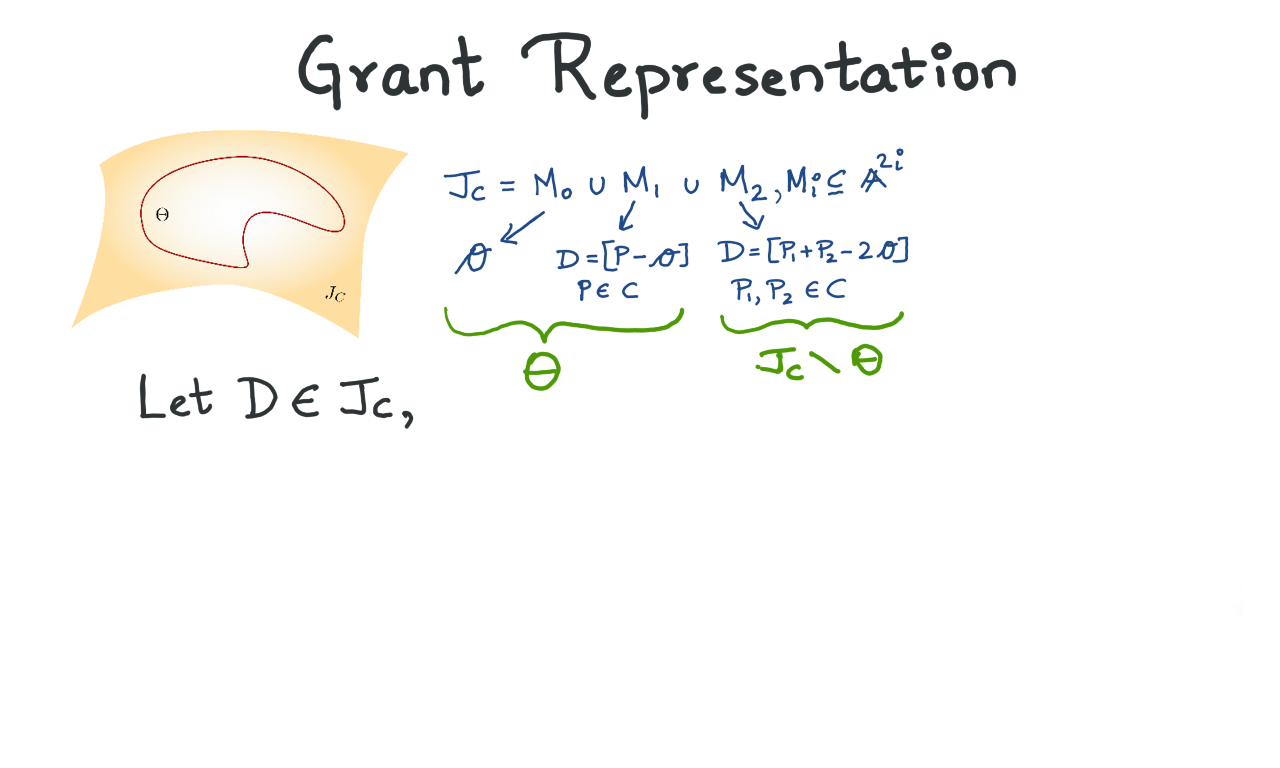 Grant Representation
J_C = M_0 ∪ M_1 ∪ M_2, M_i ⊆ 𝔸^{2i}
𝒪 D=[P-𝒪] D=[P_1+P_2-2𝒪]
P∈C P_1, P_2 ∈ C
Θ J_C \ Θ
Θ
J_C
Let D ∈ J_C,